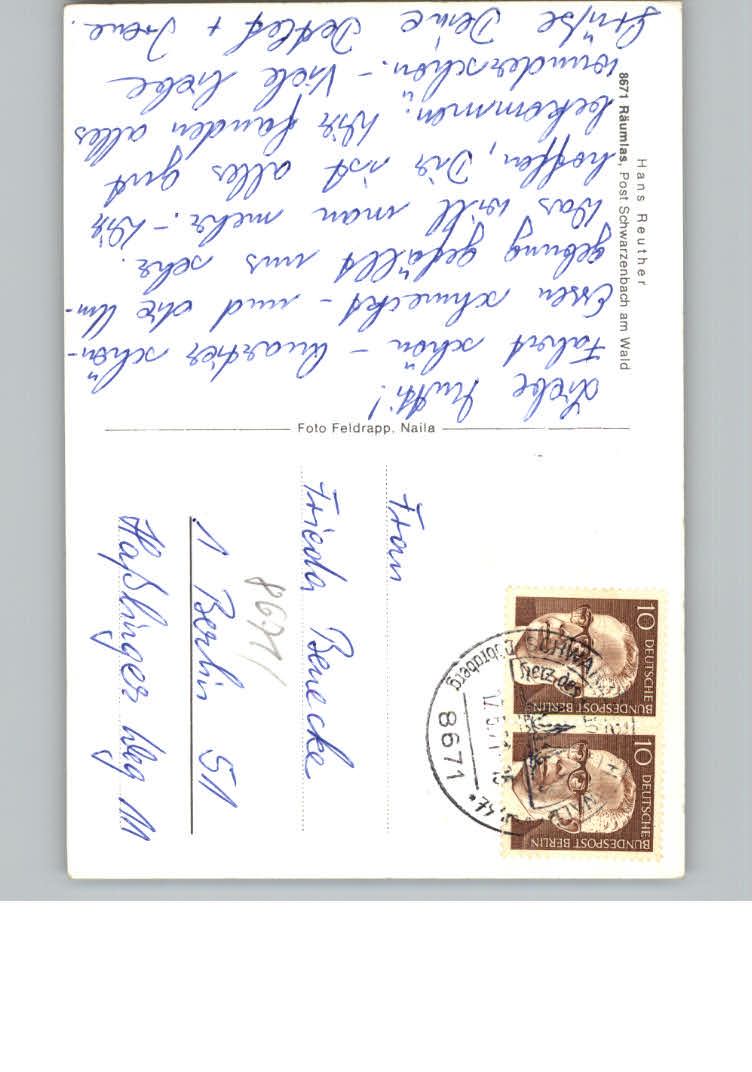 Liebe Mutti!
Fahrt schön - Quartier schön -
Essen schmeckt - und die Um-
gebung gefällt uns sehr.
Was will man mehr. - Wir
hoffen, Dir ist alles gut
bekommen. Wir fanden alles
wunderschön. - Viele liebe
Grüße Deine Detlef + Irene.
Hans Reuther
8671 Räumlas, Post Schwarzenbach am Wald
Foto Feldrapp, Naila
Frau
Frieda Benecke
1 Berlin 51
Haßlinger Weg 111
8671
10 DEUTSCHE BUNDESPOST BERLIN
10 DEUTSCHE BUNDESPOST BERLIN
8671
Döbraberg